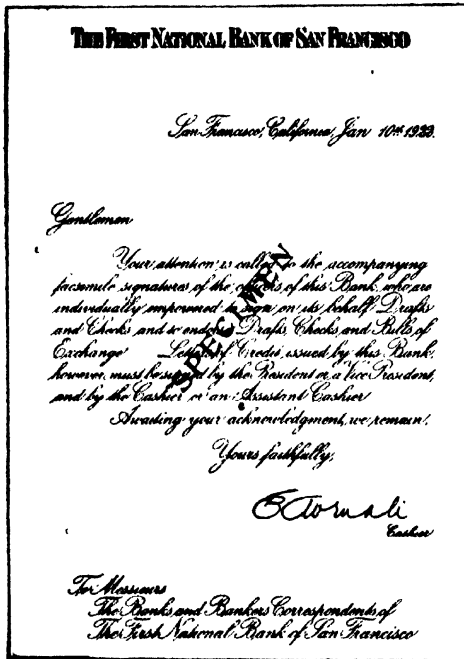 THE FIRST NATIONAL BANK OF SAN FRANCISCO
San Francisco, California, Jan 10th 1923.
Gentlemen
Your attention is called to the accompanying
facsimile signatures of the officers of this Bank, who are
individually empowered to sign on its behalf Drafts
and Checks and to endorse Drafts, Checks and Bills of
Exchange Letters of Credit issued by this Bank,
however, must be signed by the President or a Vice President,
and by the Cashier or an Assistant Cashier
Awaiting your acknowledgment, we remain,
Yours faithfully,
Cashier
To Messieurs
The Banks and Bankers Correspondents of
The First National Bank of San Francisco
SPECIMEN